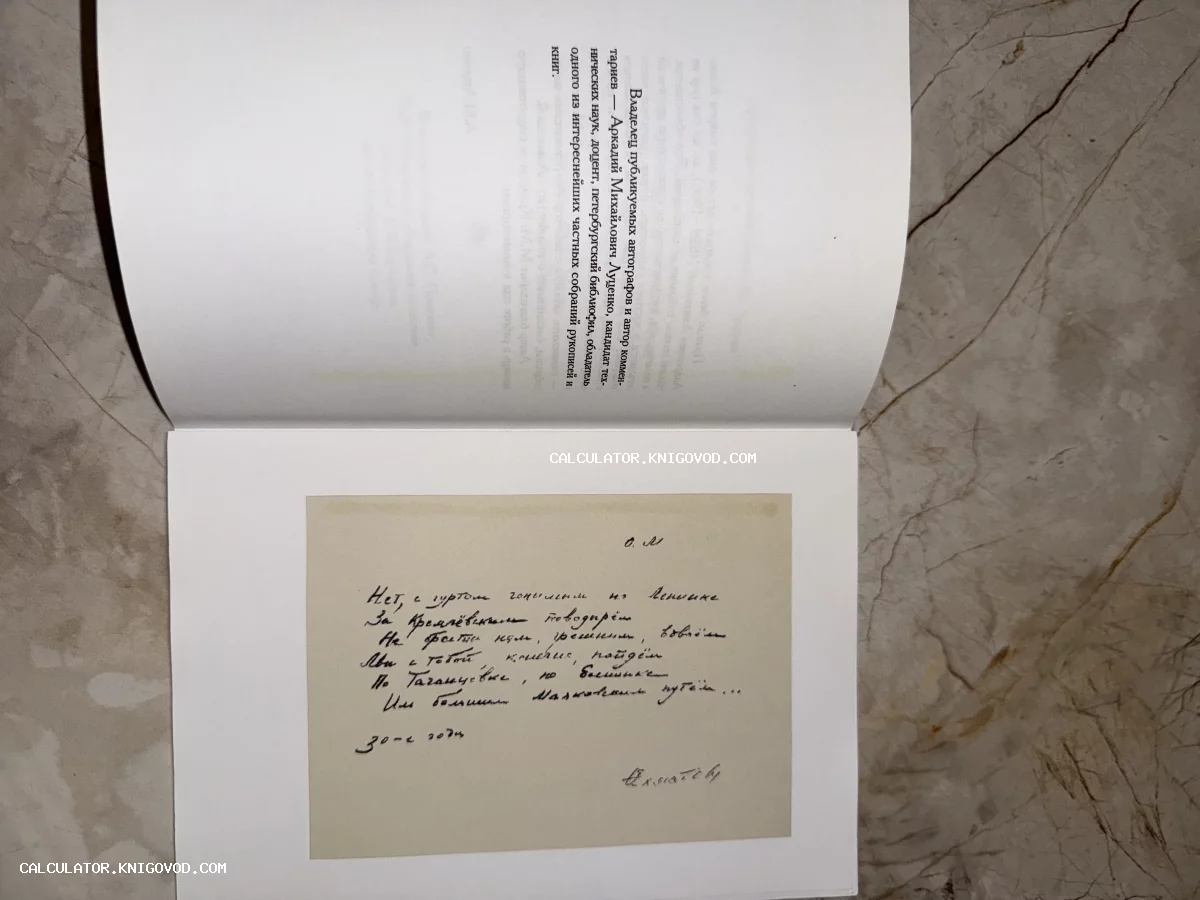 Владелец публикуемых автографов и автор коммен-
тариев — Аркадий Михайлович Луценко, кандидат тех-
нических наук, доцент, петербургский библиофил, обладатель
одного из интереснейших частных собраний рукописей и
книг.
О. М
Нет, с гуртом гонимым по Ленинке
За Кремлёвским поводырём
Не брести нам, грешным, вдвоём
Мы с тобой, конечно, пойдём
По Таганцевке, по Есенинке
Иль большим Маяковским путём...
30-е годы
Ахматова
CALCULATOR.KNIGOVOD.COM
CALCULATOR.KNIGOVOD.COM